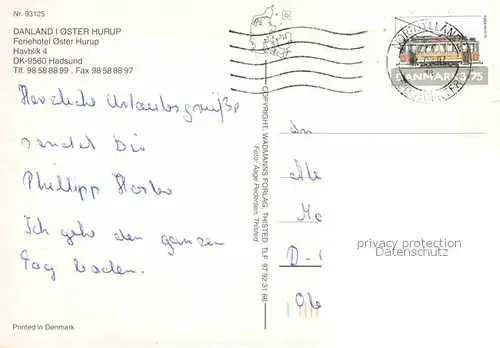 Nr. 93125
DANLAND I ØSTER HURUP
Feriehotel Øster Hurup
Havblik 4
DK-9560 Hadsund
Tlf. 98 58 88 99 . Fax 98 58 88 97
Herzliche Urlaubsgrüße
sendet Dir
Phillipp
Ich gehe den ganzen
Tag baden.
Printed in Denmark
COPYRIGHT. WADMANNS FORLAG, THISTED. TLF. 97 92 31 66
Foto: Aage Pedersen, Thisted
DANMARK 3.75
An
D-
privacy protection
Datenschutz